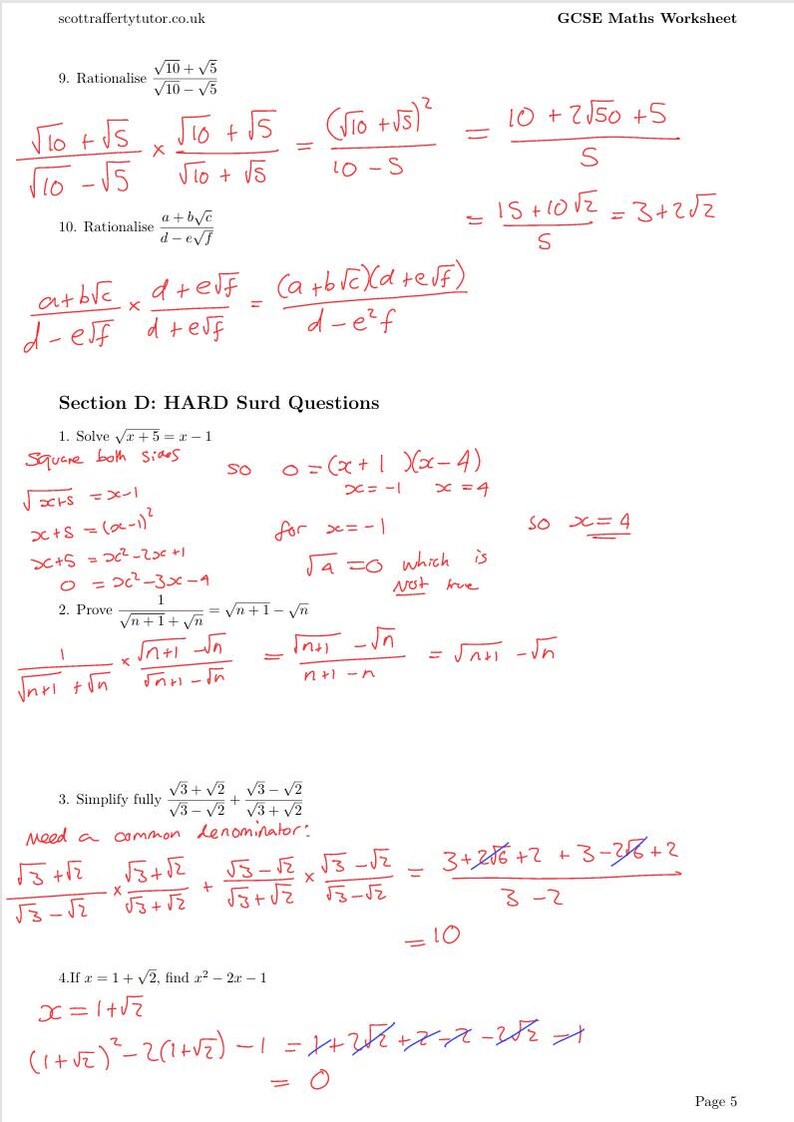 scottraffertytutor.co.uk GCSE Maths Worksheet
9. Rationalise (√10 + √5)/(√10 − √5)
(√10 + √5)/(√10 − √5) × (√10 + √5)/(√10 + √5) = (√10 + √5)²/(10 − 5) = (10 + 2√50 + 5)/5
= (15 + 10√2)/5 = 3 + 2√2
10. Rationalise (a + b√c)/(d − e√f)
(a + b√c)/(d − e√f) × (d + e√f)/(d + e√f) = (a + b√c)(d + e√f)/(d − e²f)
Section D: HARD Surd Questions
1. Solve √(x + 5) = x − 1
Square both sides
√(x+5) = x−1
x+5 = (x−1)²
x+5 = x²−2x+1
0 = x²−3x−4
so 0 = (x + 1)(x − 4)
x = −1 x = 4
for x = −1
√4 = 0 which is
Not true
so x = 4
2. Prove 1/(√(n + 1) + √n) = √(n + 1) − √n
1/(√(n+1) + √n) × (√(n+1) − √n)/(√(n+1) − √n) = (√(n+1) − √n)/(n+1 − n) = √(n+1) − √n
3. Simplify fully (√3 + √2)/(√3 − √2) + (√3 − √2)/(√3 + √2)
Need a common denominator:
(√3 + √2)/(√3 − √2) × (√3 + √2)/(√3 + √2) + (√3 − √2)/(√3 + √2) × (√3 − √2)/(√3 − √2) = (3 + 2√6 + 2 + 3 − 2√6 + 2)/(3 − 2)
= 10
4.If x = 1 + √2, find x² − 2x − 1
x = 1+√2
(1+√2)² − 2(1+√2) − 1 = 1 + 2√2 + 2 − 2 − 2√2 − 1
= 0
Page 5